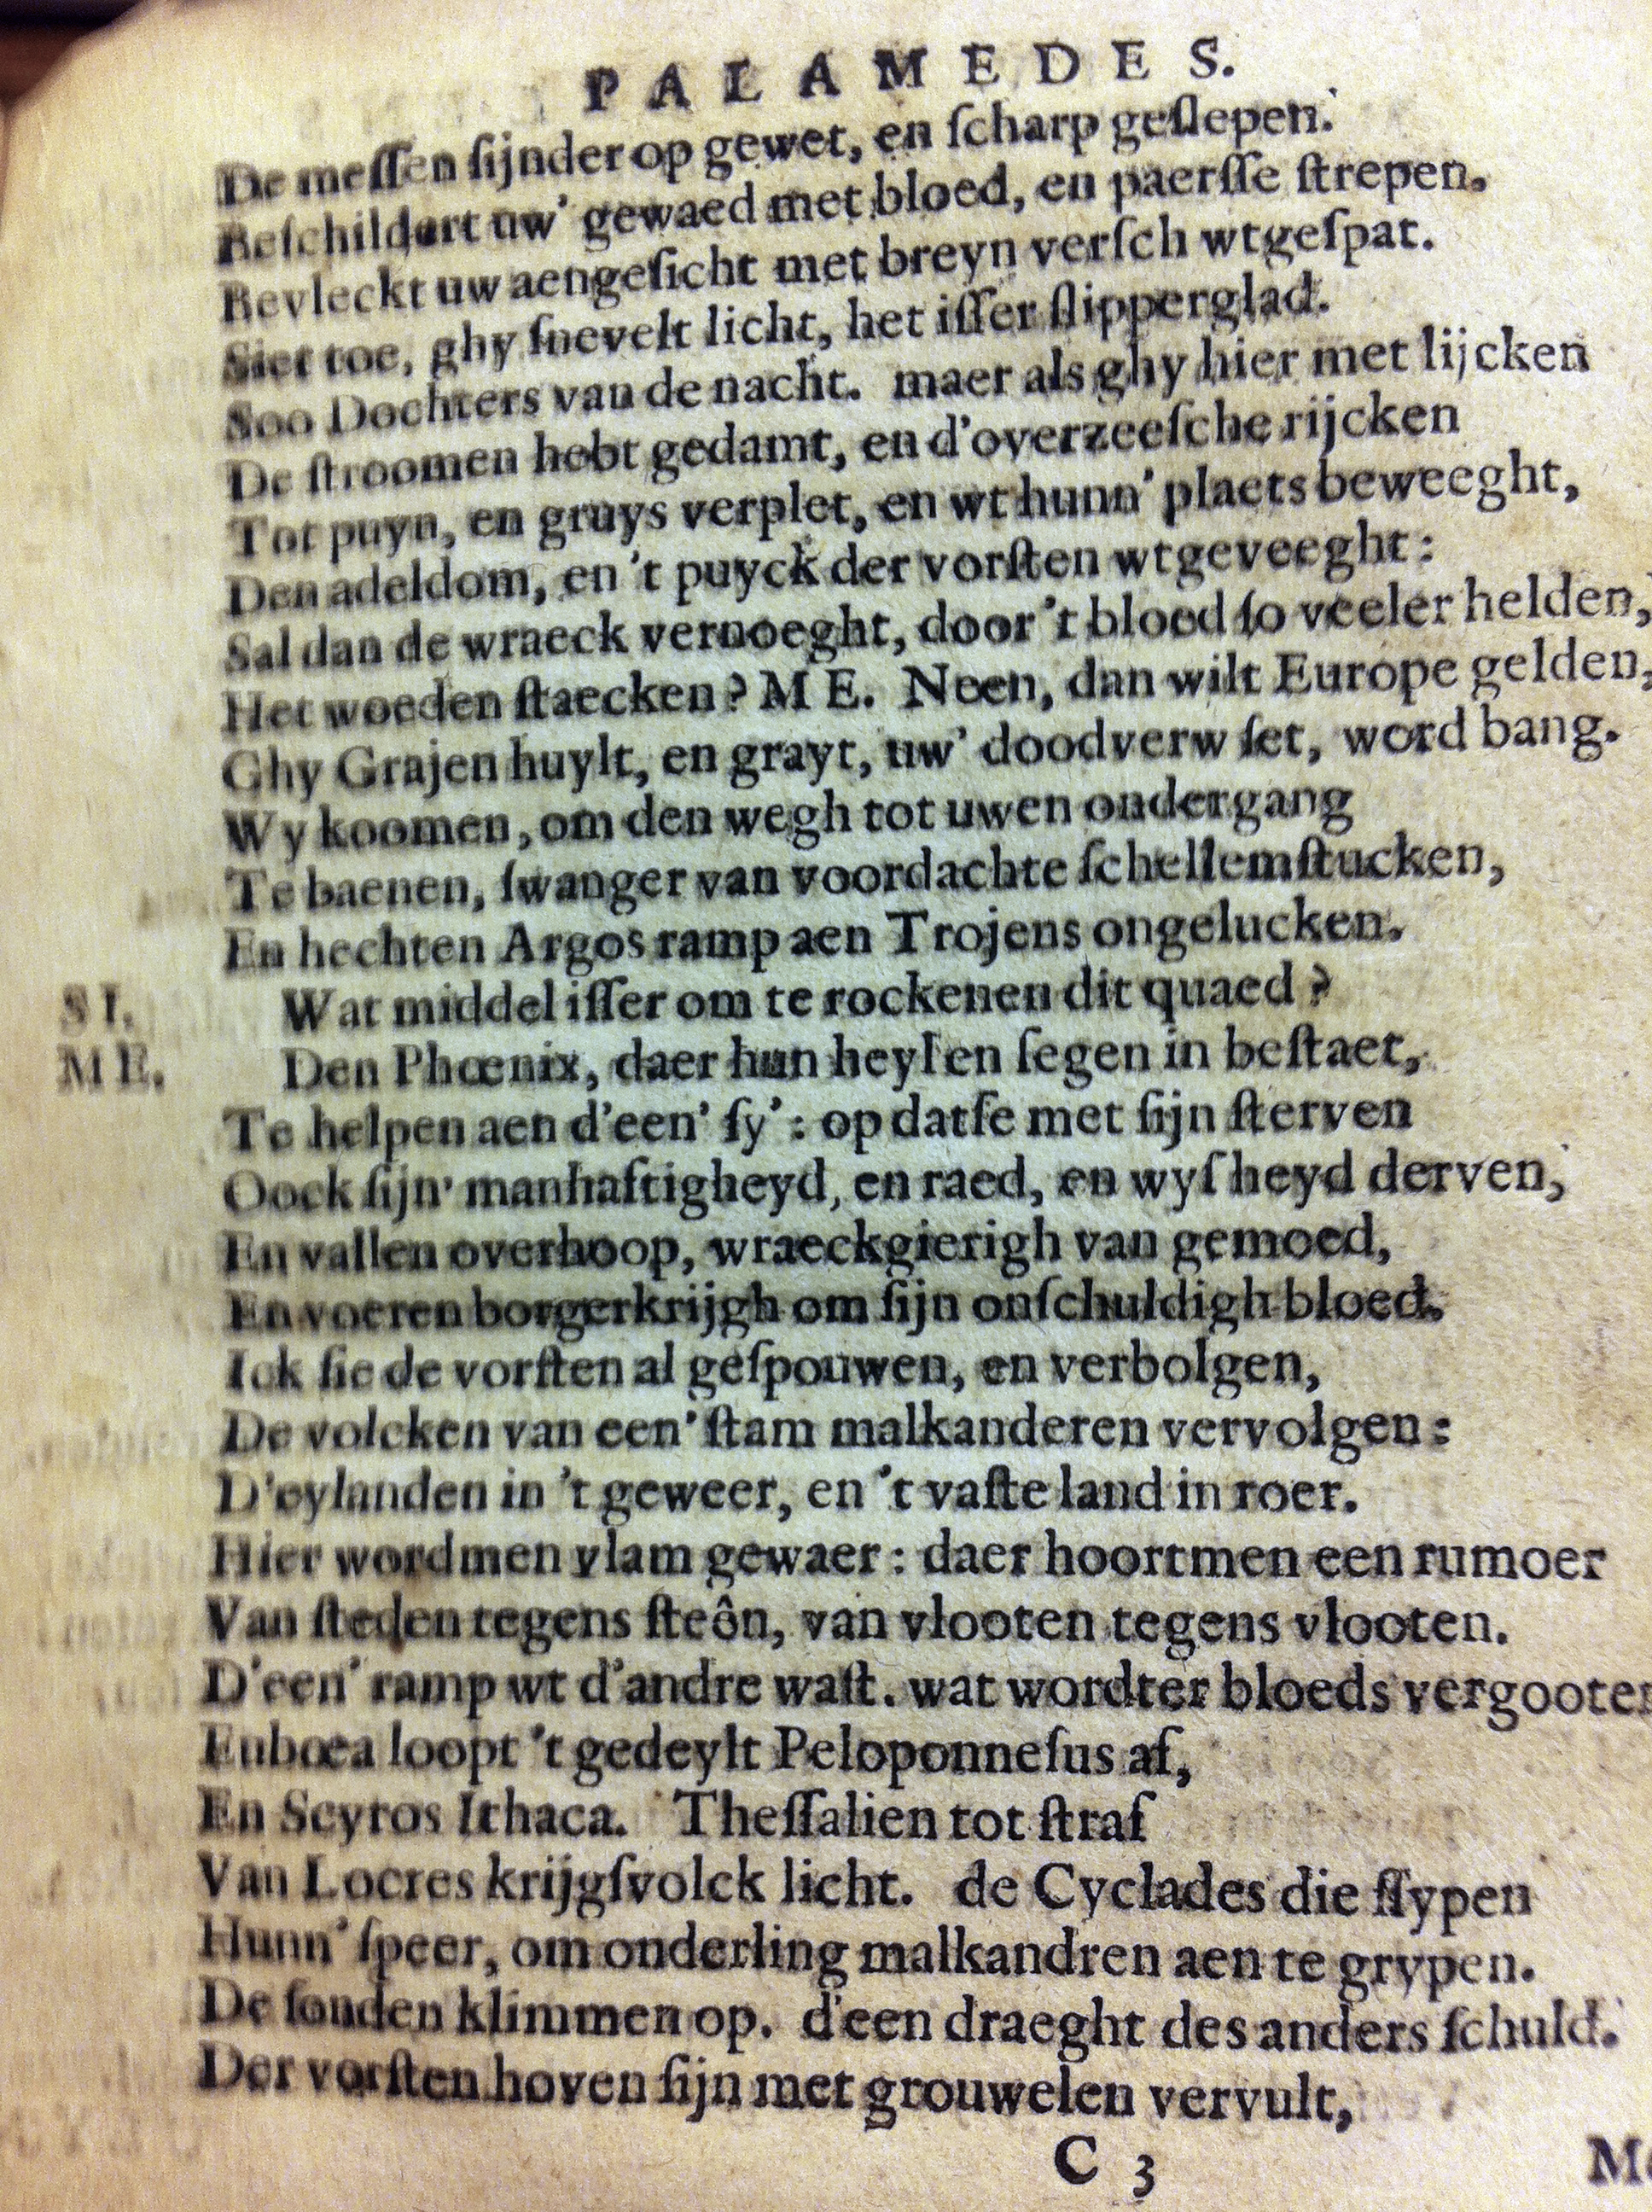 PALAMEDES.
De meſſen ſijnder op gewet, en ſcharp geſlepen.
Beſchildert uw' gewaed met bloed, en paerſſe ſtrepen.
Bevleckt uw aengeſicht met breyn verſch wtgeſpat.
Siet toe, ghy ſnevelt licht, het iſſer ſlipperglad.
Soo Dochters van de nacht. maer als ghy hier met lijcken
De ſtroomen hebt gedamt, en d'overzeeſche rijcken
Tot puyn, en gruys verplet, en wt hunn' plaets beweeght,
Den adeldom, en 't puyck der vorſten wtgeveeght:
Sal dan de wraeck vernoeght, door 't bloed ſo veeler helden,
Het woeden ſtaecken? ME. Neen, dan wilt Europe gelden,
Ghy Grajen huylt, en grayt, uw' doodverw ſet, word bang.
Wy koomen, om den wegh tot uwen ondergang
Te baenen, ſwanger van voordachte ſchellemſtucken,
En hechten Argos ramp aen Trojens ongelucken.
SI. Wat middel iſſer om te rockenen dit quaed?
ME. Den Phœnix, daer hun heyl en ſegen in beſtaet,
Te helpen aen d'een' ſy': op datſe met ſijn ſterven
Oock ſijn' manhaftigheyd, en raed, en wyſheyd derven,
En vallen overhoop, wraeckgierigh van gemoed,
En voeren borgerkrijgh om ſijn onſchuldigh bloed.
Ick ſie de vorſten al geſpouwen, en verbolgen,
De volcken van een' ſtam malkanderen vervolgen:
D'eylanden in 't geweer, en 't vaſte land in roer.
Hier wordmen vlam gewaer: daer hoortmen een rumoer
Van ſteden tegens ſteôn, van vlooten tegens vlooten.
D'een' ramp wt d'andre waſt. wat wordter bloeds vergooten
Eubœa loopt 't gedeylt Peloponneſus af,
En Scyros Ithaca. Theſſalien tot ſtraf
Van Locres krijgſvolck licht. de Cyclades die ſlypen
Hunn' ſpeer, om onderling malkandren aen te grypen.
De ſonden klimmen op. d'een draeght des anders ſchuld.
Der vorſten hoven ſijn met grouwelen vervult,
C 3